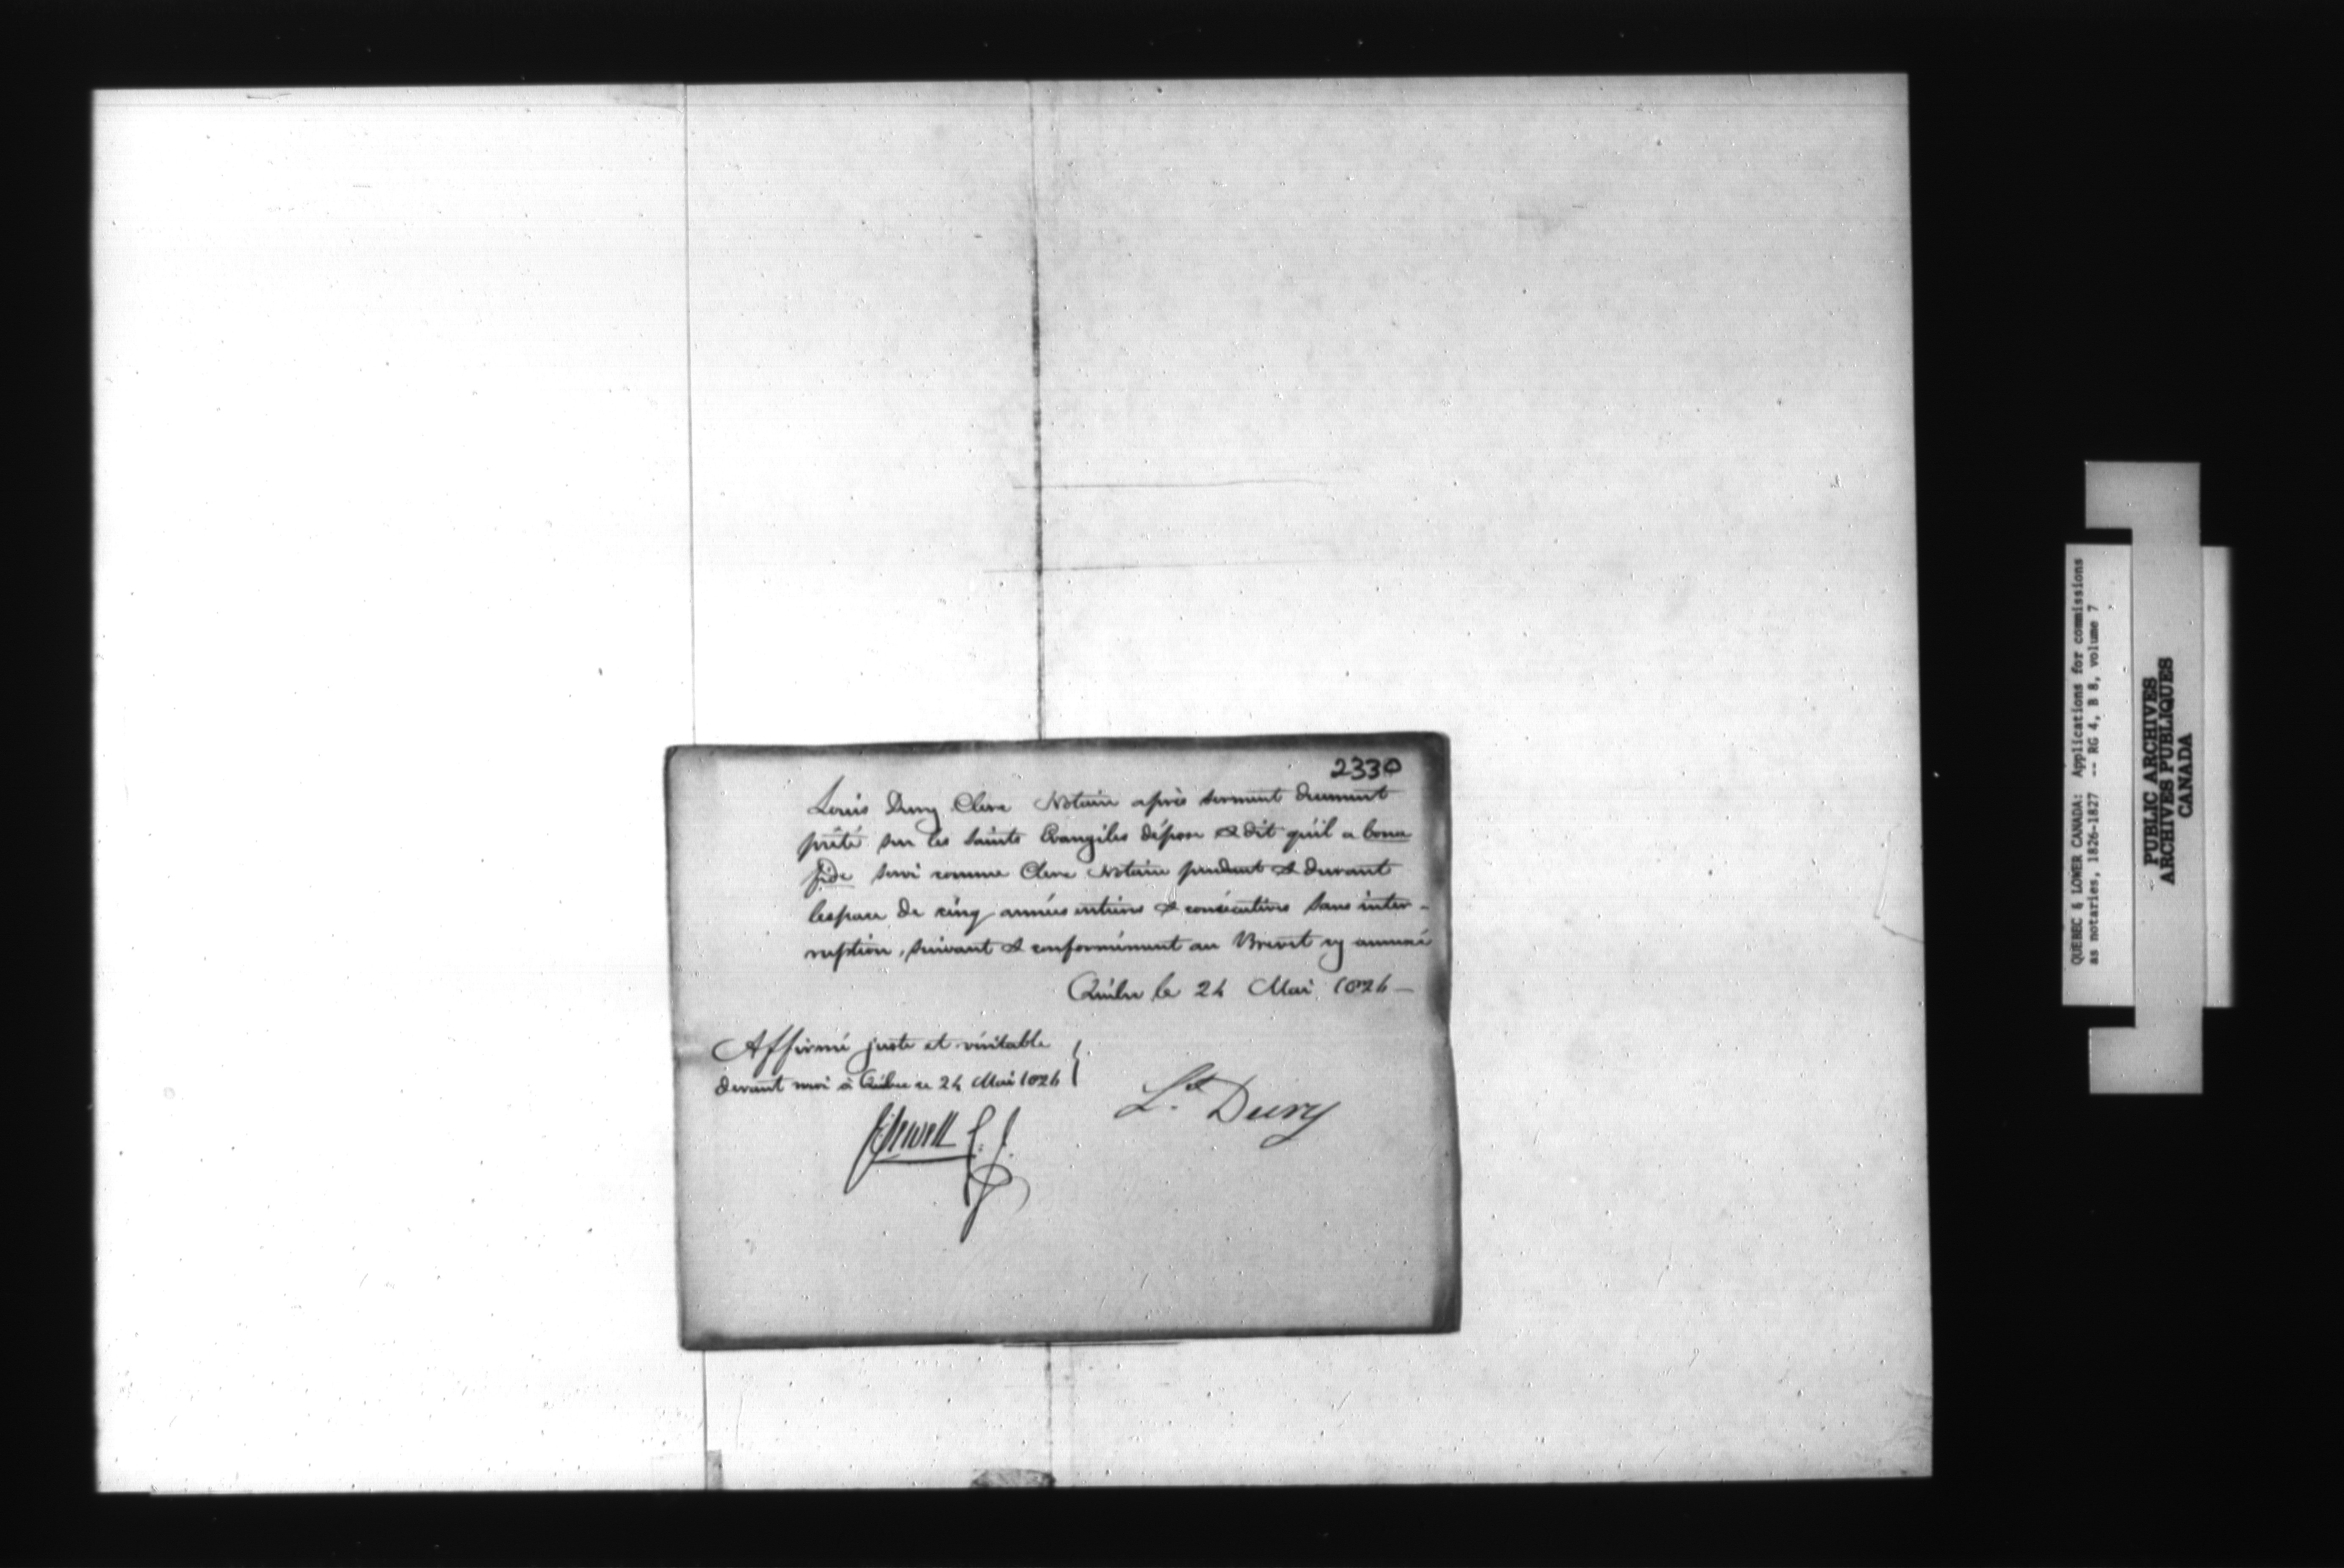 2330
Louis Dury Clerc Notaire après serment duement
prêté sur les saints Evangiles dépose & dit qu'il a bona
fide servi comme Clerc Notaire pendant & durant
lespace de cinq années entières & consécutives sans inter-
ruption, suivant & conformément au Brevet cy annexé
Québec le 24 Mai 1826 —
Affirmé juste et véritable
devant moi à Québec ce 24 Mai 1826
Ls Dury
JSewell C. J.
QUEBEC & LOWER CANADA: Applications for commissions
as notaries, 1826-1827 -- RG 4, B 8, volume 7
PUBLIC ARCHIVES
ARCHIVES PUBLIQUES
CANADA